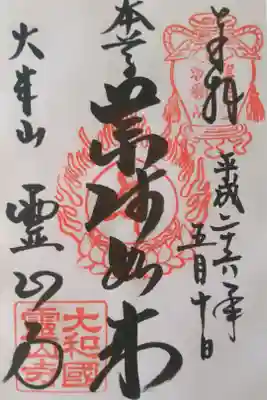 奉拝
平成二十六年
五月十日
本尊
薬師如来
大本山
霊山寺
大和國
靈山寺